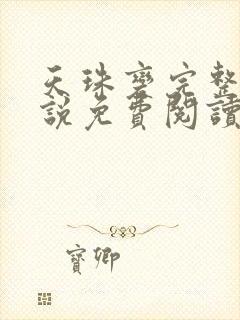 天珠變完整
說免費閱讀
寶卿